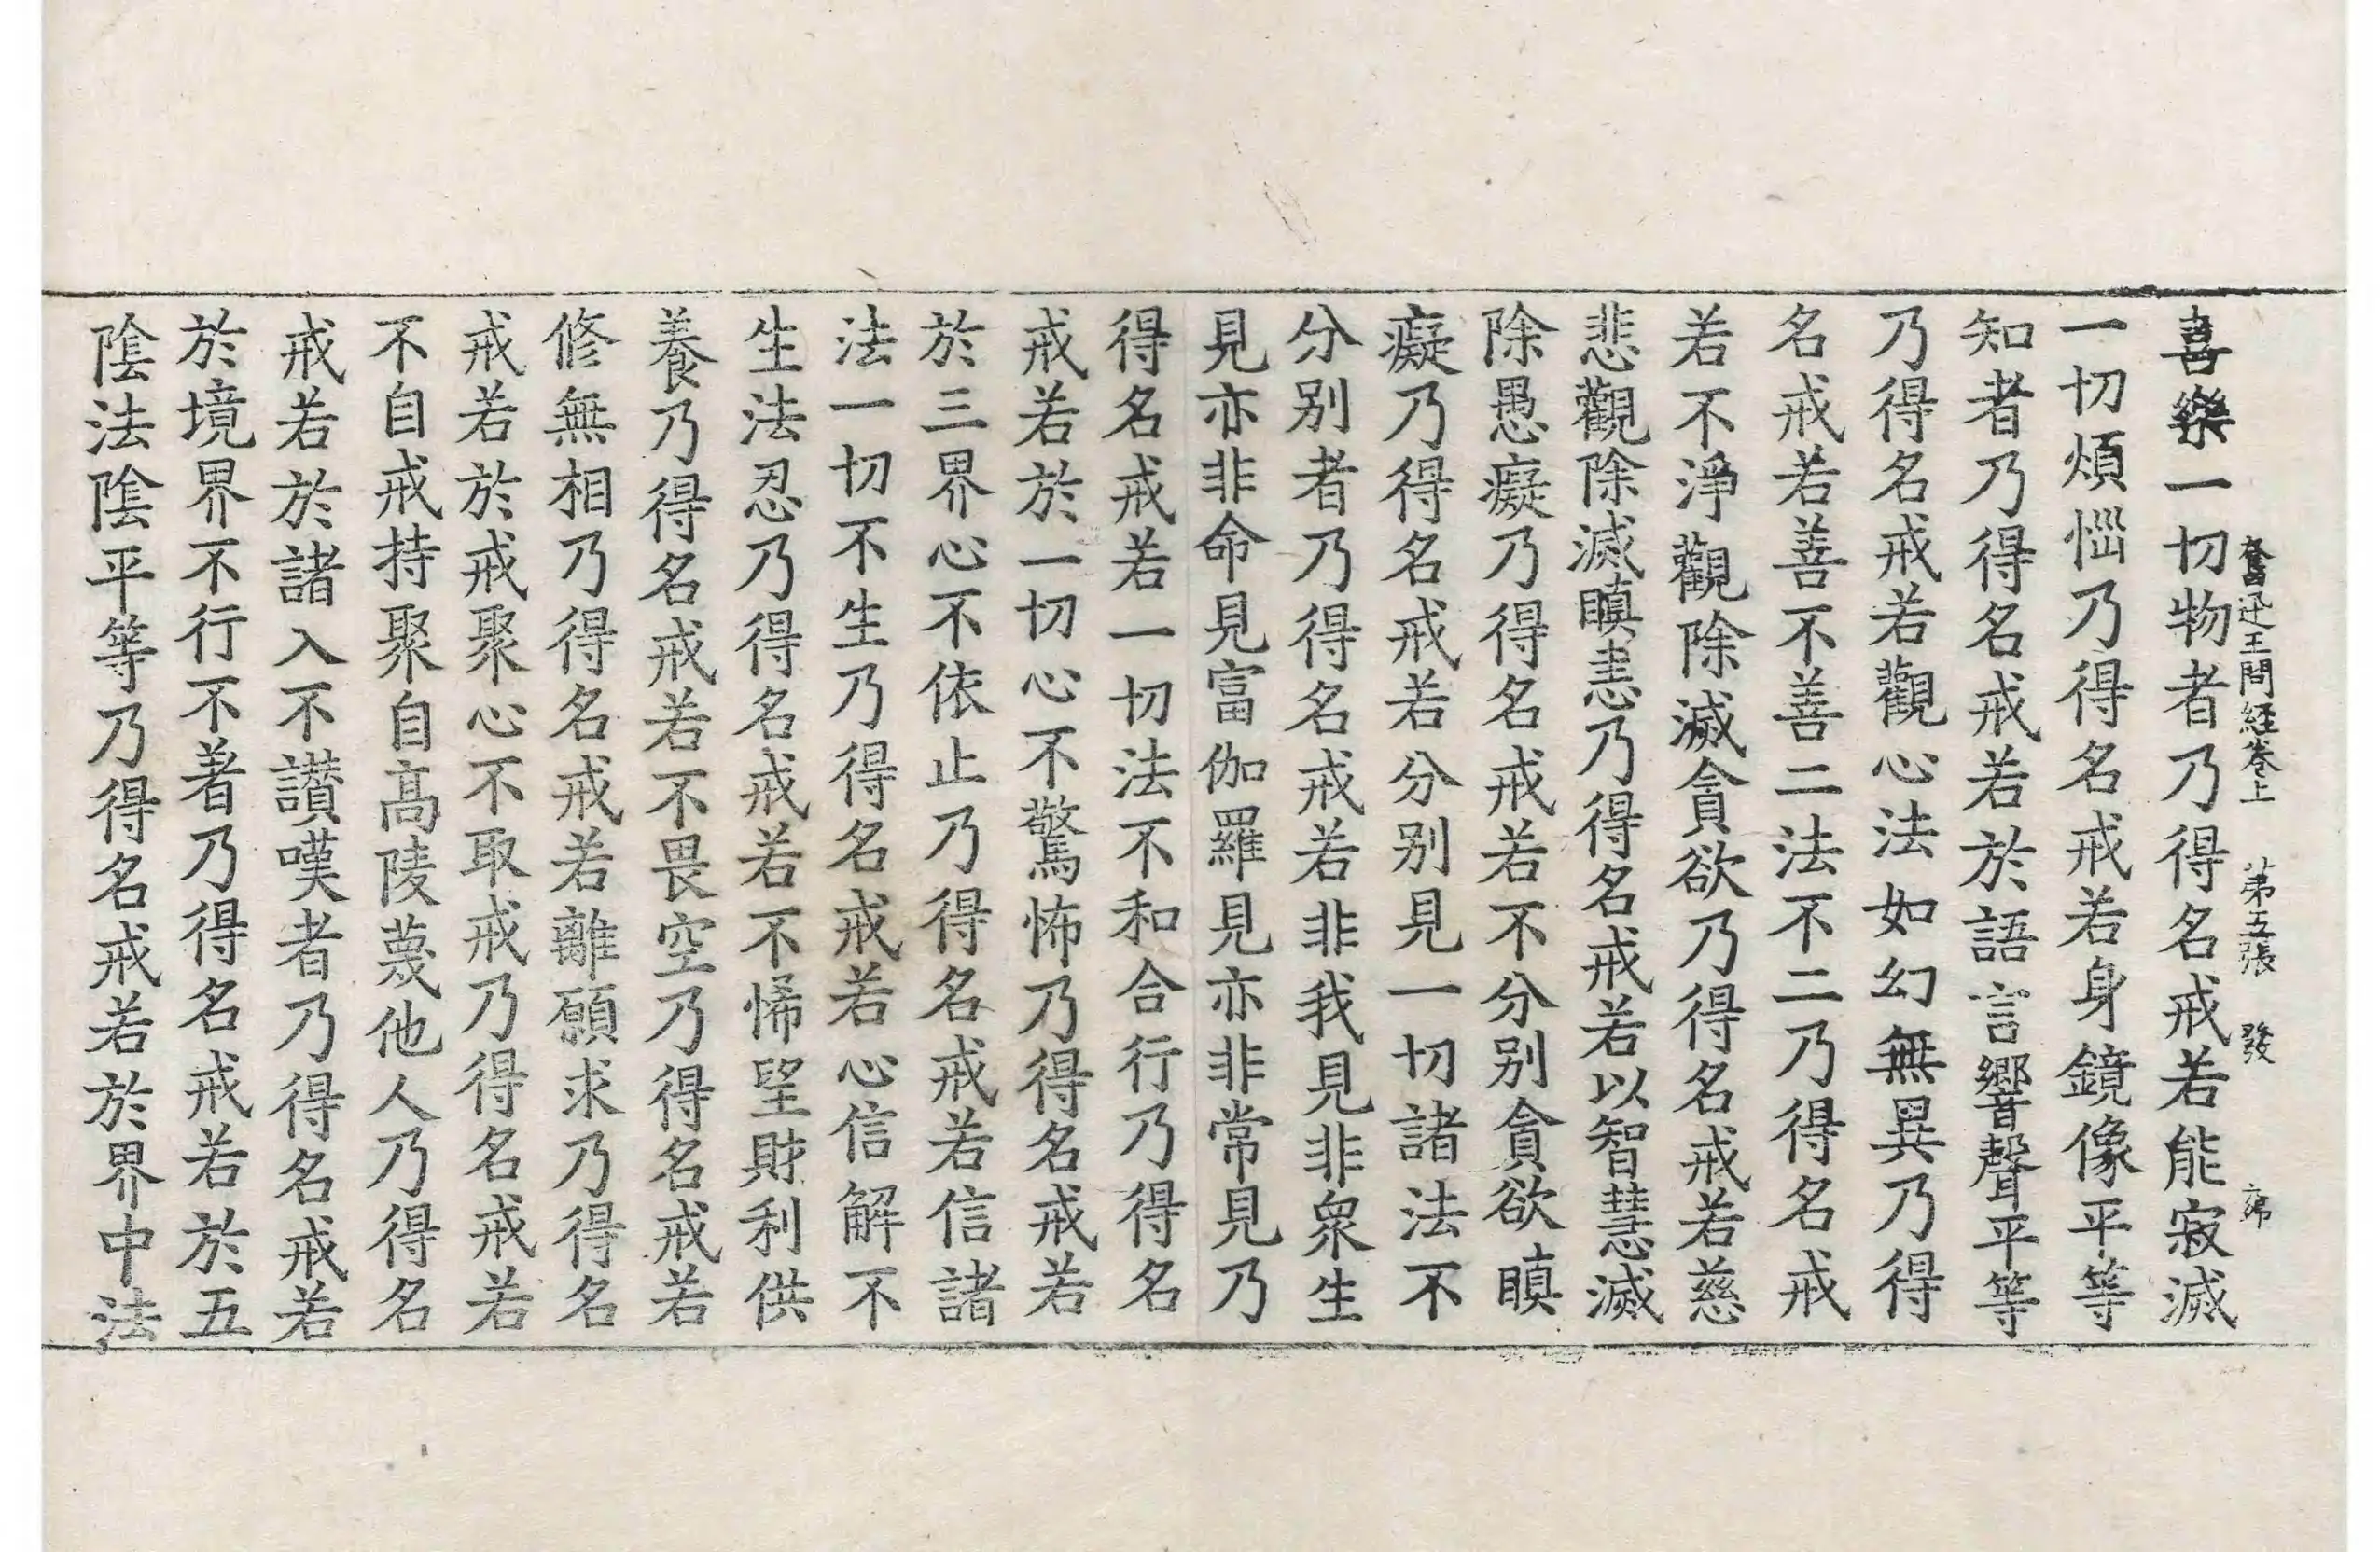 奮迅王問経卷上　第五張　發
喜樂一切物者乃得名戒若能寂滅
一切煩惱乃得名戒若身鏡像平等
知者乃得名戒若於語言響聲平等
乃得名戒若觀心法如幻無異乃得
名戒若善不善二法不二乃得名戒
若不淨觀除滅貪欲乃得名戒若慈
悲觀除滅瞋恚乃得名戒若以智慧滅
除愚癡乃得名戒若不分別貪欲瞋
癡乃得名戒若分別見一切諸法不
分別者乃得名戒若非我見非衆生
見亦非命見富伽羅見亦非常見乃
得名戒若一切法不和合行乃得名
戒若於一切心不驚怖乃得名戒若
於三界心不依止乃得名戒若信諸
法一切不生乃得名戒若心信解不
生法忍乃得名戒若不悕望財利供
養乃得名戒若不畏空乃得名戒若
修無相乃得名戒若離願求乃得名
戒若於戒聚心不取戒乃得名戒若
不自戒持聚自高陵蔑他人乃得名
戒若於諸入不讃嘆者乃得名戒若
於境界不行不著乃得名戒若於五
陰法陰平等乃得名戒若於界中法